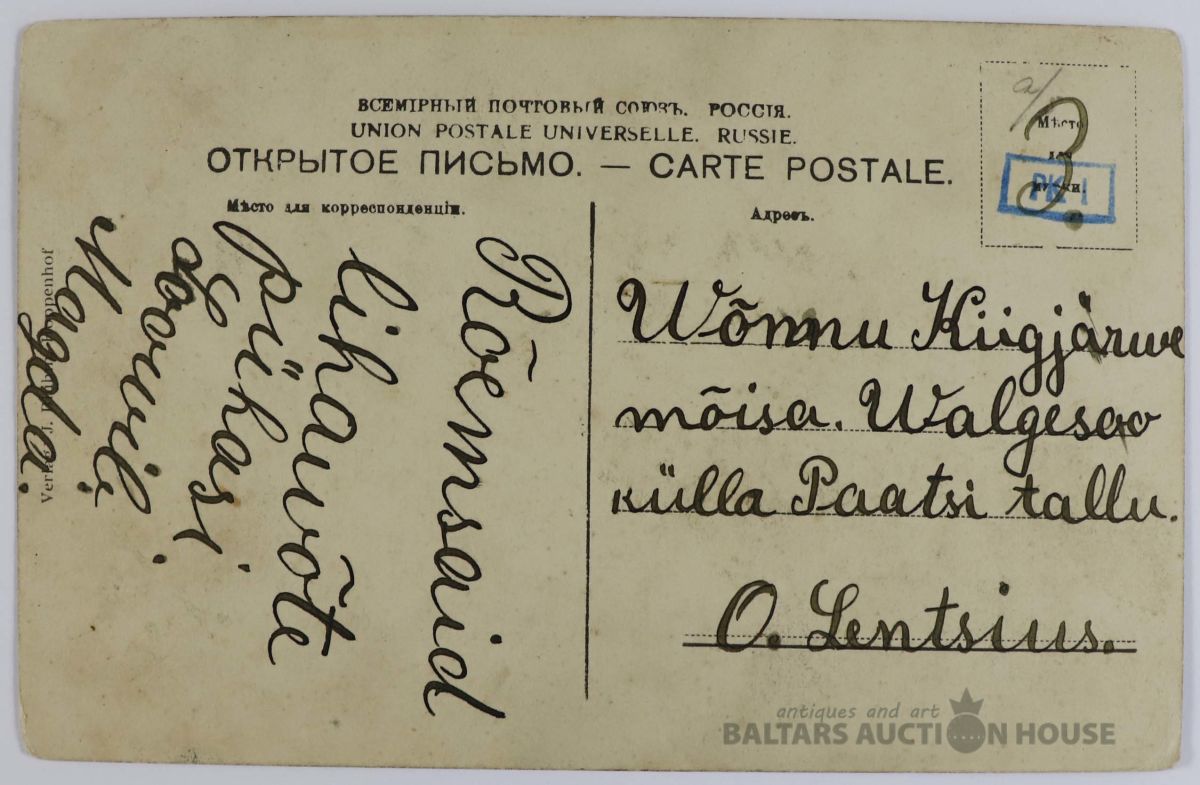 ВСЕМІРНЫЙ ПОЧТОВЫЙ СОЮЗЪ. РОССІЯ.
UNION POSTALE UNIVERSELLE. RUSSIE.
ОТКРЫТОЕ ПИСЬМО. — CARTE POSTALE.
Мѣсто для корреспонденціи.
Rõemsaid
lihawõte
pühasi
soowib
Magda.
Адресъ.
Wõnnu Kiigjärwe
mõisa. Walgesoo
külla Paatsi tallu.
O. Lentsius.
Мѣсто
марки.
PK-1
3.
a/
antiques and art
BALTARS AUCTION HOUSE